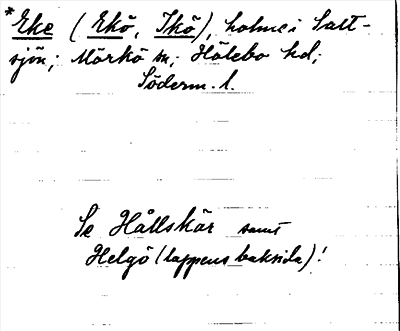 *Eke (Ekö, Ikö), holme i Salt-
sjön; Mörkö sn; Hölebo hd;
Söderm. l.
Se Hållskär samt
Helgö (lappens baksida)!